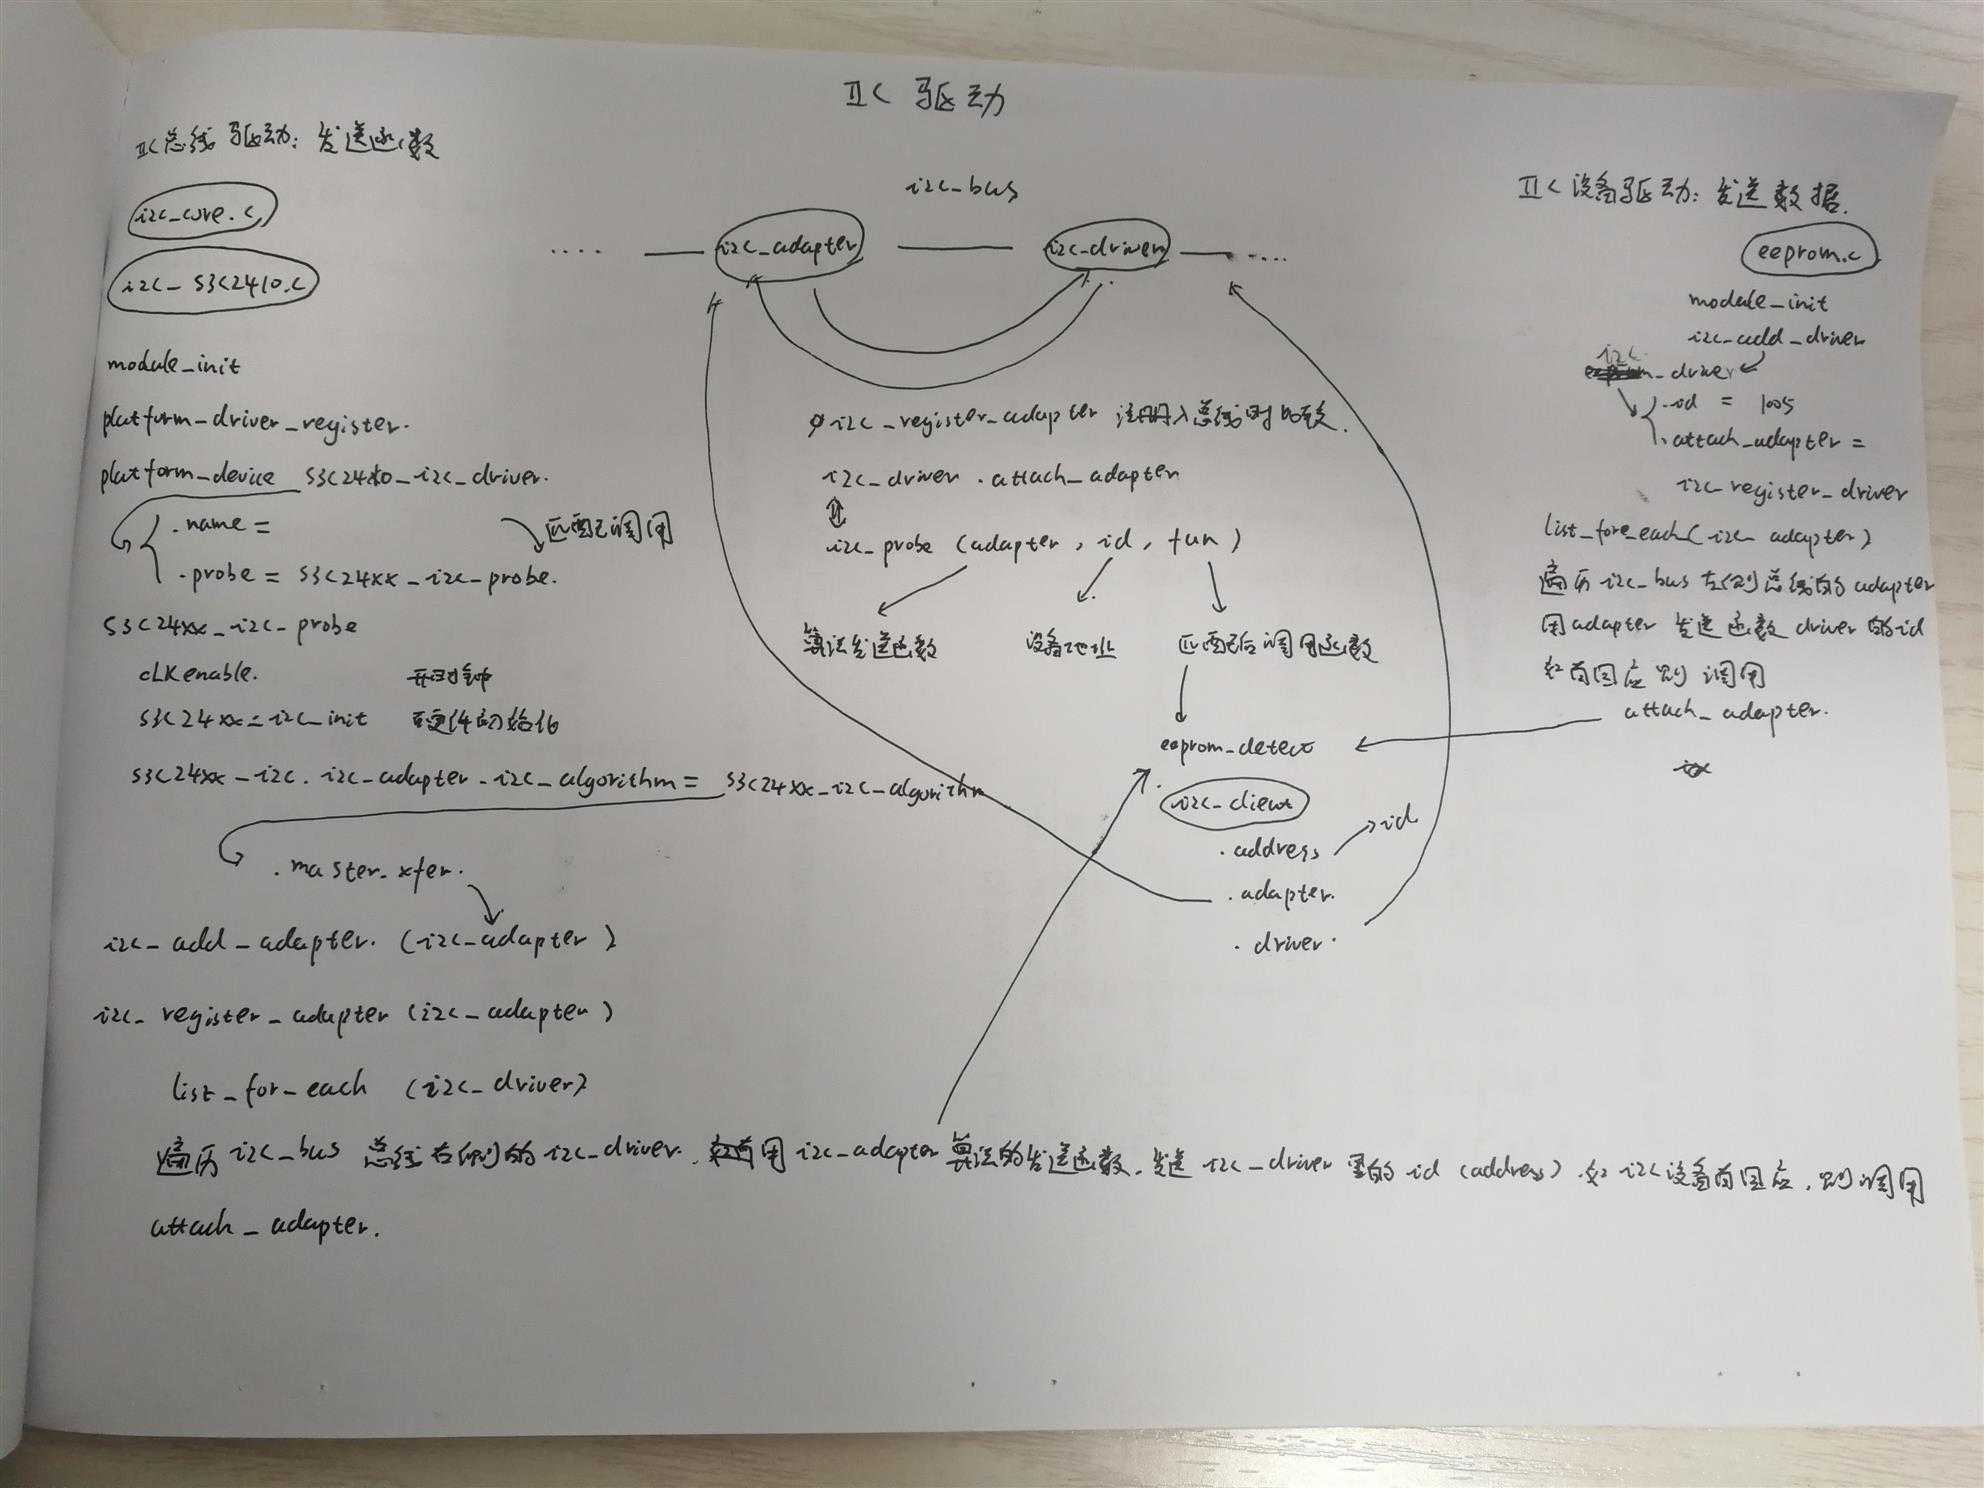 IIC 驱动
IIC总线驱动：发送函数
i2c_core.c
i2c_S3C2410.c
module_init
platform_driver_register.
platform_device S3C24x0_i2c_driver.
.name =
匹配调用
.probe = S3C24xx_i2c_probe.
S3C24xx_i2c_probe
cLK enable. 开时钟
S3C24xx_i2c_init 硬件初始化
S3C24xx_i2c.i2c_adapter.i2c_algorithm = S3C24xx_i2c_algorithm
.master_xfer.
i2c_add_adapter. (i2c_adapter)
i2c_register_adapter (i2c_adapter)
list_for_each (i2c_driver)
遍历 i2c_bus 总线右侧的 i2c_driver. 用 i2c_adapter 算法的发送函数, 发送 i2c_driver 里的 id (address). 如 i2c设备有回应, 则调用
attach_adapter.
i2c_bus
.... — i2c_adapter — i2c_driver — ....
i2c_register_adapter 注册入总线时
i2c_driver.attach_adapter
i2c_probe (adapter, id, fun)
算法发送函数 设备地址 匹配后调用函数
eeprom_detect
i2c_client
.address → id.
.adapter.
.driver.
IIC设备驱动：发送数据.
eeprom.c
module_init
i2c_add_driver
i2c_driver
.id = 1005
.attach_adapter =
i2c_register_driver
list_fore_each (i2c_adapter)
遍历 i2c_bus 左侧总线的 adapter
用adapter 发送函数 driver 的id
如有回应则 调用
attach_adapter.